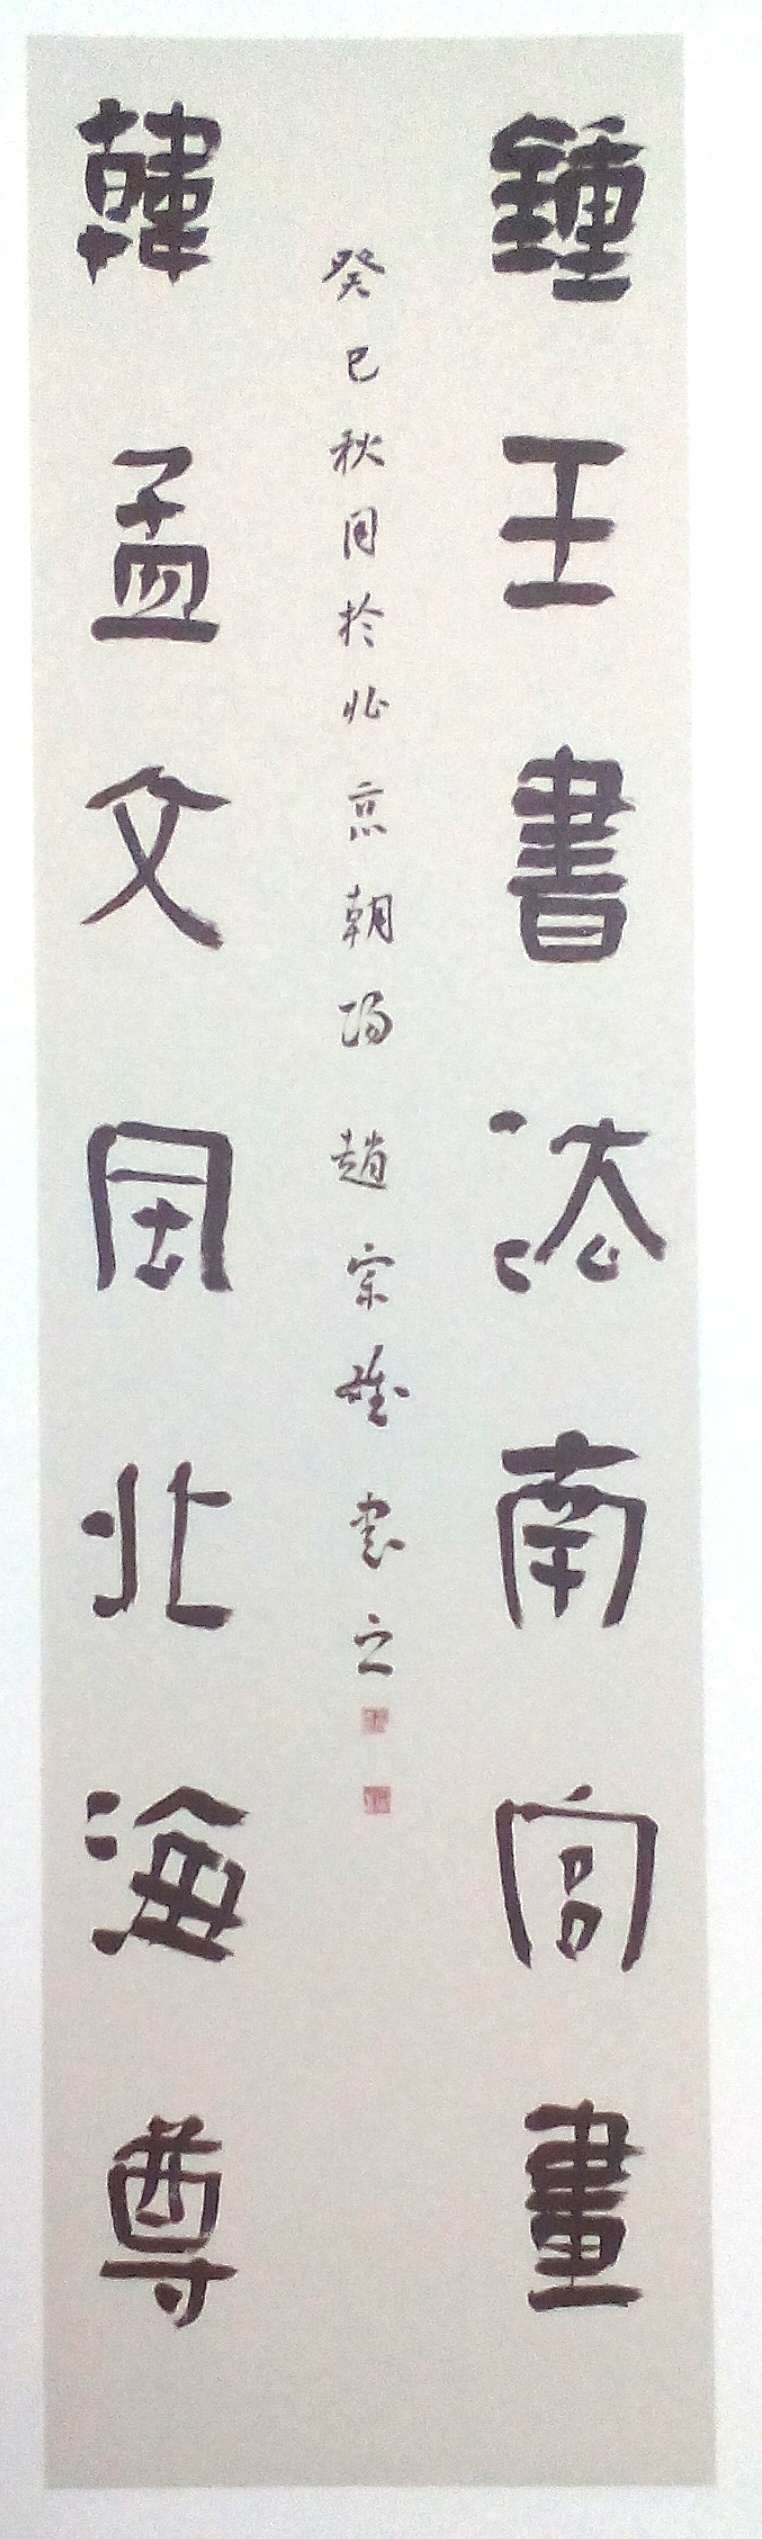 鍾王書法南宮畫
韓孟文風北海尊
癸巳秋月於北京朝陽 趙宗 書之